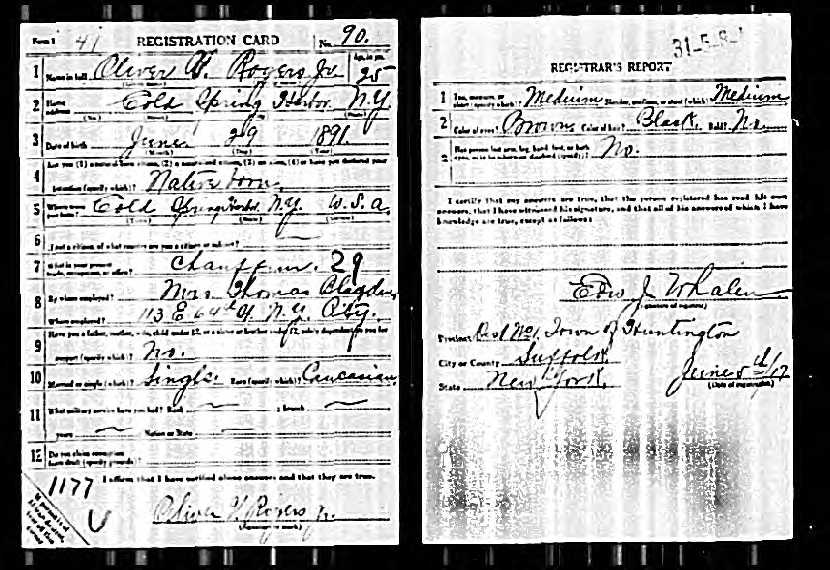 Form 1 41 REGISTRATION CARD No. 90.
1 Name in full Oliver Rogers Jr Age, in yrs. 25
2 Home address Cold Spring Harbor N.Y.
(No.) (Street) (City) (State)
3 Date of birth June 29 1891
(Month) (Day) (Year)
4 Are you (1) a natural born citizen, (2) a naturalized citizen, (3) an alien, (4) or have you declared your
intention (specify which)? Native born
5 Where were you born? Cold Spring Harbor N.Y. U.S.A.
(Town) (State) (Nation)
6 If not a citizen of what country are you a citizen or subject?
7 What is your present trade, occupation, or office? Chauffeur. 29
8 By whom employed? Mrs Thomas Blagden
Where employed? 113 E 64th St. N.Y. City.
9 Have you a father, mother, wife, child under 12, or a sister or brother under 12, solely dependent on you for
support (specify which)? No.
10 Married or single (which)? Single Race (specify which)? Caucasian
11 What military service have you had? Rank ; branch
years Nation or State
12 Do you claim exemption from draft (specify grounds)?
1177 I affirm that I have verified above answers and that they are true.
Oliver Rogers Jr.
(Signature or mark)
31-5-8-
REGISTRAR'S REPORT
1 Tall, medium, or short (specify which)? Medium Slender, medium, or stout (which)? Medium
2 Color of eyes? Brown Color of hair? Black Bald? No
3 Has person lost arm, leg, hand, foot, or both eyes, or is he otherwise disabled (specify)? No.
I certify that my answers are true, that the person registered has read his own
answers, that I have witnessed his signature, and that all of his answers of which I have
knowledge are true, except as follows:
Edw J Whalen
(Signature of registrar)
Precinct Dist No 1 Town of Huntington
City or County Suffolk
State New York June 5th/17
(Date of registration)